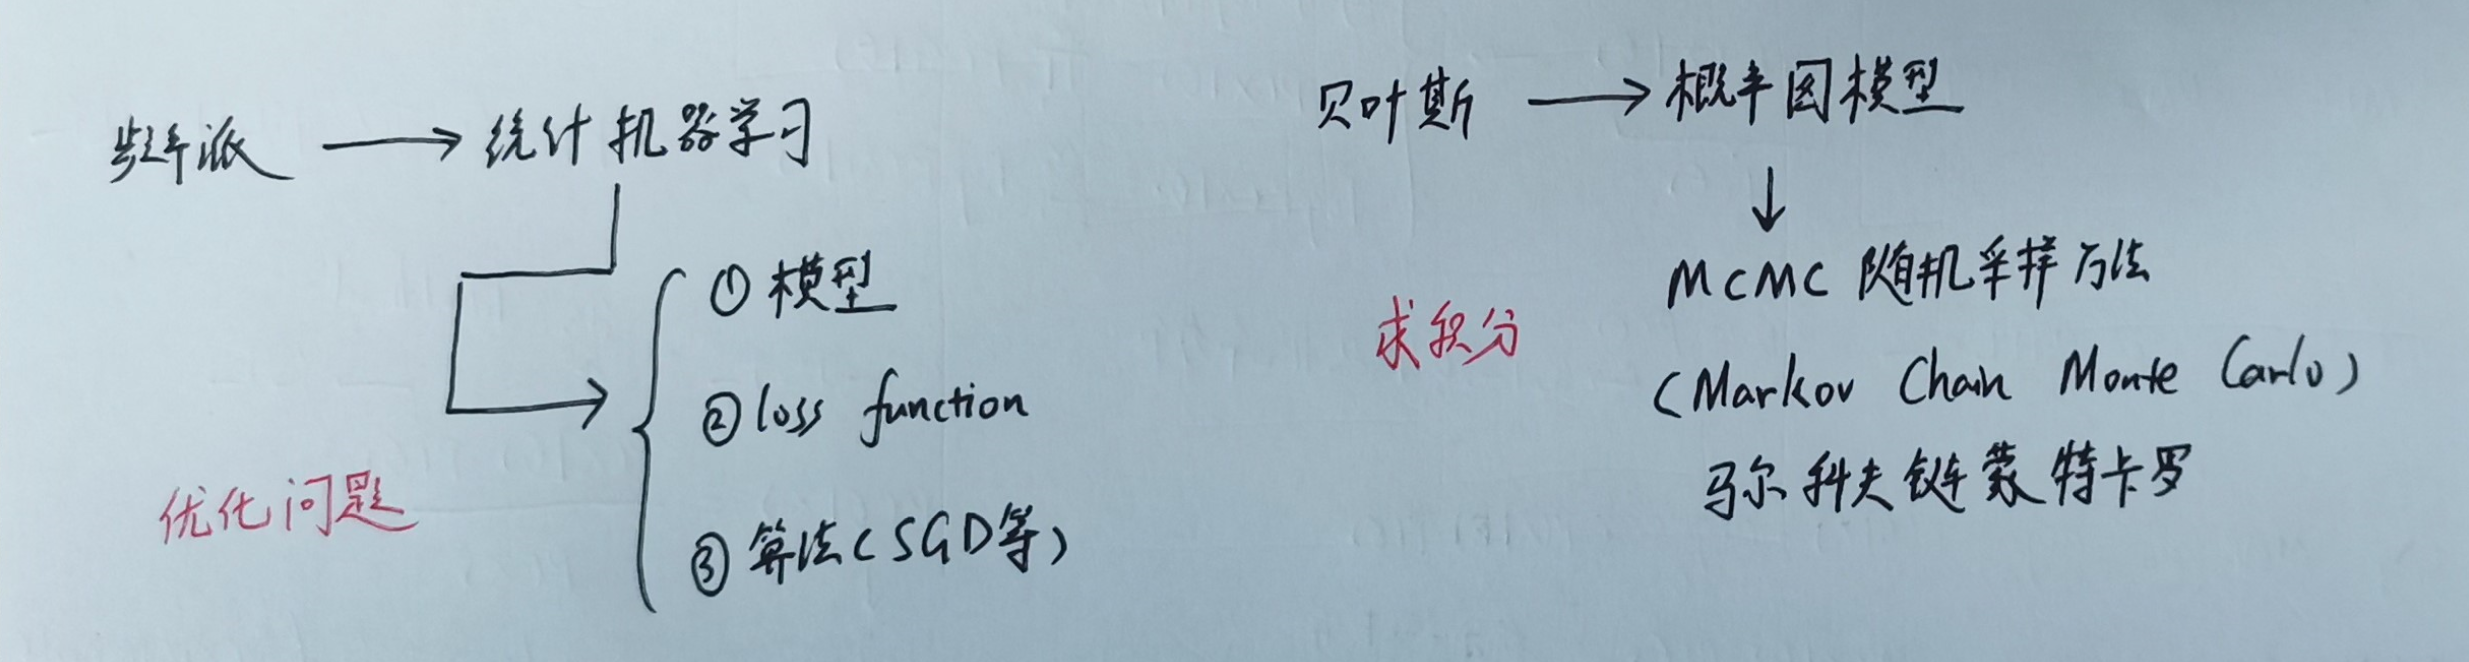 频率派 → 统计机器学习
① 模型
② loss function
③ 算法（SGD等）
优化问题
贝叶斯 → 概率图模型
↓
MCMC 随机采样方法
（Markov Chain Monte Carlo）
马尔科夫链蒙特卡罗
求积分